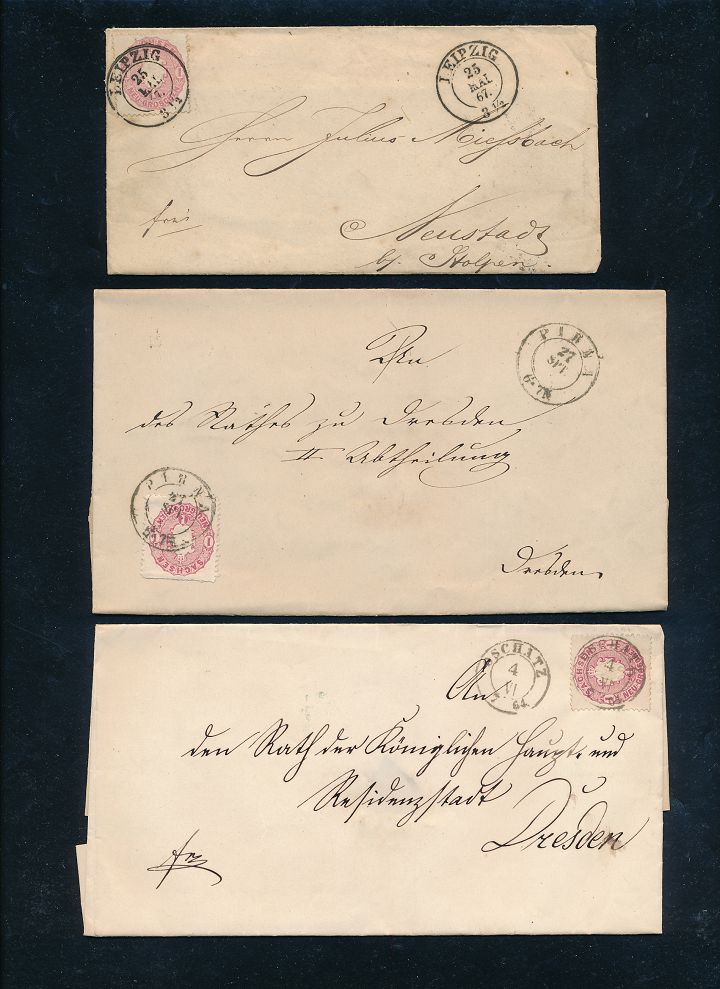 LEIPZIG
25
MAI
67.
3½
LEIPZIG
25
MAI
67.
3½
NEU-GROSCHEN
Herrn Julius Miessbach
frei
Neustadt
b/ Stolpen.
PIRNA
27
SPT.
6-7N
An
des Rathes zu Dresden
II. Abtheilung
PIRNA
27
SPT.
SACHSEN
1
Dresden.
OSCHATZ
4
VI
64.
SACHSEN
4
VI
An
den Rath der Königlichen Haupt- und
Residenzstadt
Dresden
fr